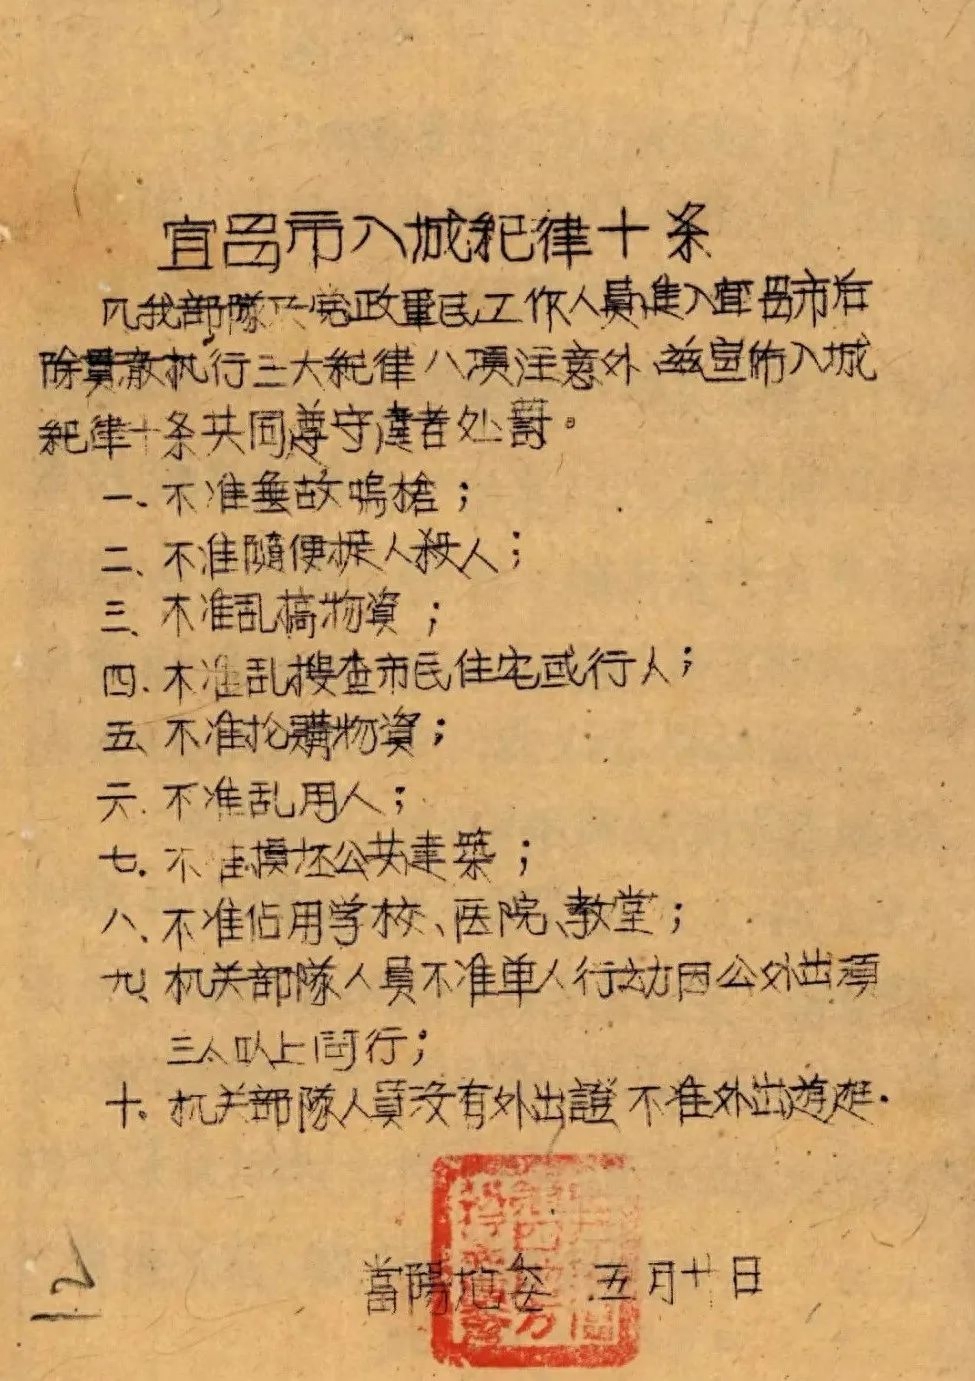 宜昌市入城紀律十条
凡我部隊及党政軍民工作人員進入宜昌市后
除貫澈执行三大紀律八項注意外茲宣佈入城
紀律十条共同遵守違者处罰。
一、不准無故鳴槍；
二、不准隨便捉人殺人；
三、不准乱搞物資；
四、不准乱搜查市民住宅或行人；
五、不准抢購物資；
六、不准乱用人；
七、不准損坏公共建築；
八、不准佔用学校、医院、教堂；
九、机关部隊人員不准单人行动因公外出須
三人以上同行；
十、机关部隊人員没有外出證不准外出遊逛.
當陽地委 五月廿日
12